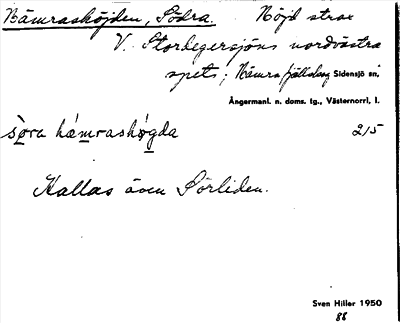 Bämrashöjden, Södra. Höjd strax
V. Stordegersjöns nordvästra
spets; Sidensjö sn.
Ångermanl. n. doms. lg., Västernorrl. l.
sö̀ra há̀mrashö̀gda 2/5
Kallas även Sörliden.
Sven Hiller 1950
88